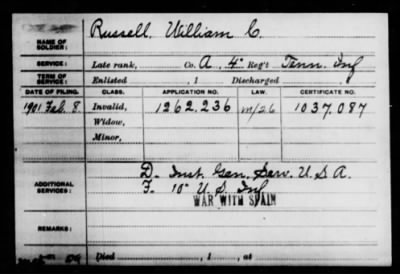 NAME OF SOLDIER: Russell, William C.
SERVICE: Late rank, Co. A, 4" Reg't Tenn. Inf
TERM OF SERVICE: Enlisted , 1 Discharged , 1
DATE OF FILING. CLASS. APPLICATION NO. LAW. CERTIFICATE NO.
1901 Feb. 8. Invalid, 1262,236 1037.087
Widow,
Minor,
ADDITIONAL SERVICES: D. Inst. Gen. Serv. U.S.A.
F. 10" U.S. Inf
WAR WITH SPAIN
REMARKS:
Died , 1 , at